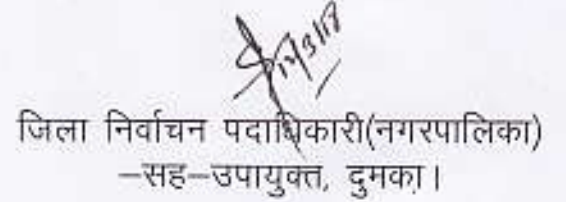 12/3/18
जिला निर्वाचन पदाधिकारी(नगरपालिका)
–सह–उपायुक्त, दुमका।